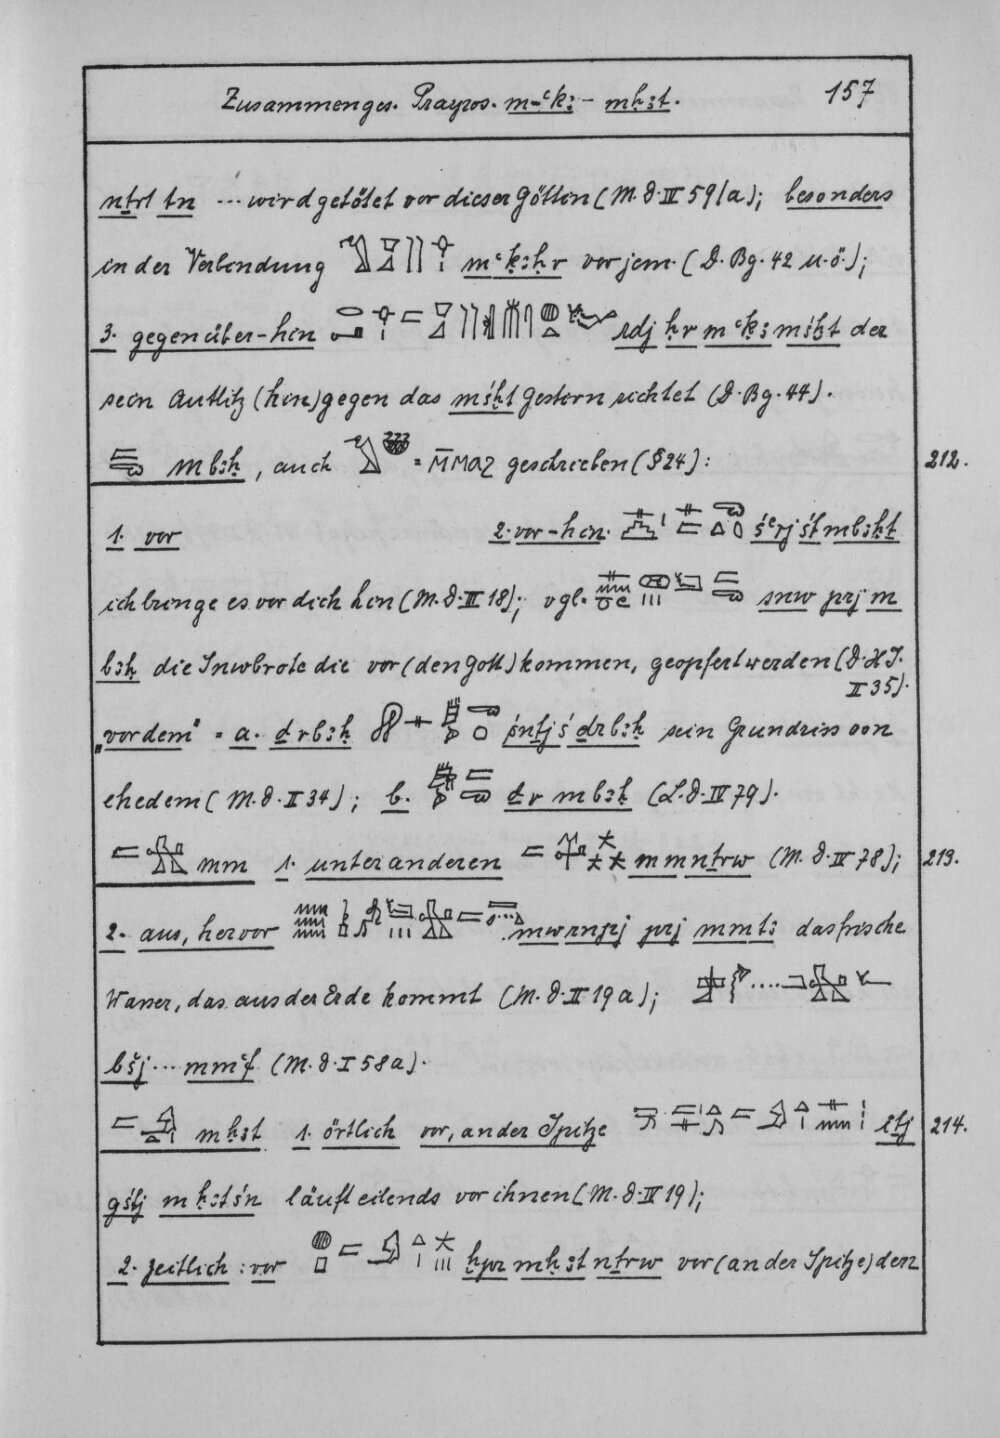 Zusammenges. Praepos. m-ꜥkꜣ - mḥꜣt. 157
nṯrt tn ... wird getötet vor dieser Göttin (M. D. IV 59/a); besonders
in der Verbindung mꜥḳꜣ ḥr vor jem. (D. Bg. 42 u. ö.);
3. gegenüber-hin rdj ḥr mꜥkꜣ mśḫt der
sein Antlitz (hin)gegen das mśḫt Gestirn richtet (D. Bg. 44).
m bꜣḥ, auch = ⲘⲘⲀϨ geschrieben (§ 24): 212.
1. vor 2. vor-hin. śꜥrj śt m bꜣḥ ṯ
ich bringe es vor dich hin (M. D. III 18); vgl. snw prj m
bꜣḥ die Snwbrote die vor (den Gott) kommen, geopfert werden (D. H J.
II 35).
„vordem" = a. ḏr bꜣḥ śnṯj ś ḏr bꜣḥ sein Grundriss von
ehedem (M. D. I 34); b. ḏr m bꜣḥ (L. D. IV 79).
mm 1. unter anderen mm nṯrw (M. D. IV 78); 213.
2. aus, hervor mw rnpj prj mm tꜣ das frische
Wasser, das aus der Erde kommt (M. D. II 19 a);
bšj ... mmꜥf (M. D. I 58 a).
m ḥꜣt 1. örtlich vor, an der Spitze itj 214.
gśtj m ḥꜣt śn läuft eilends vor ihnen (M. D. IV 19);
2. zeitlich: vor ḫpr m ḥꜣt nṯrw vor (an der Spitze) den